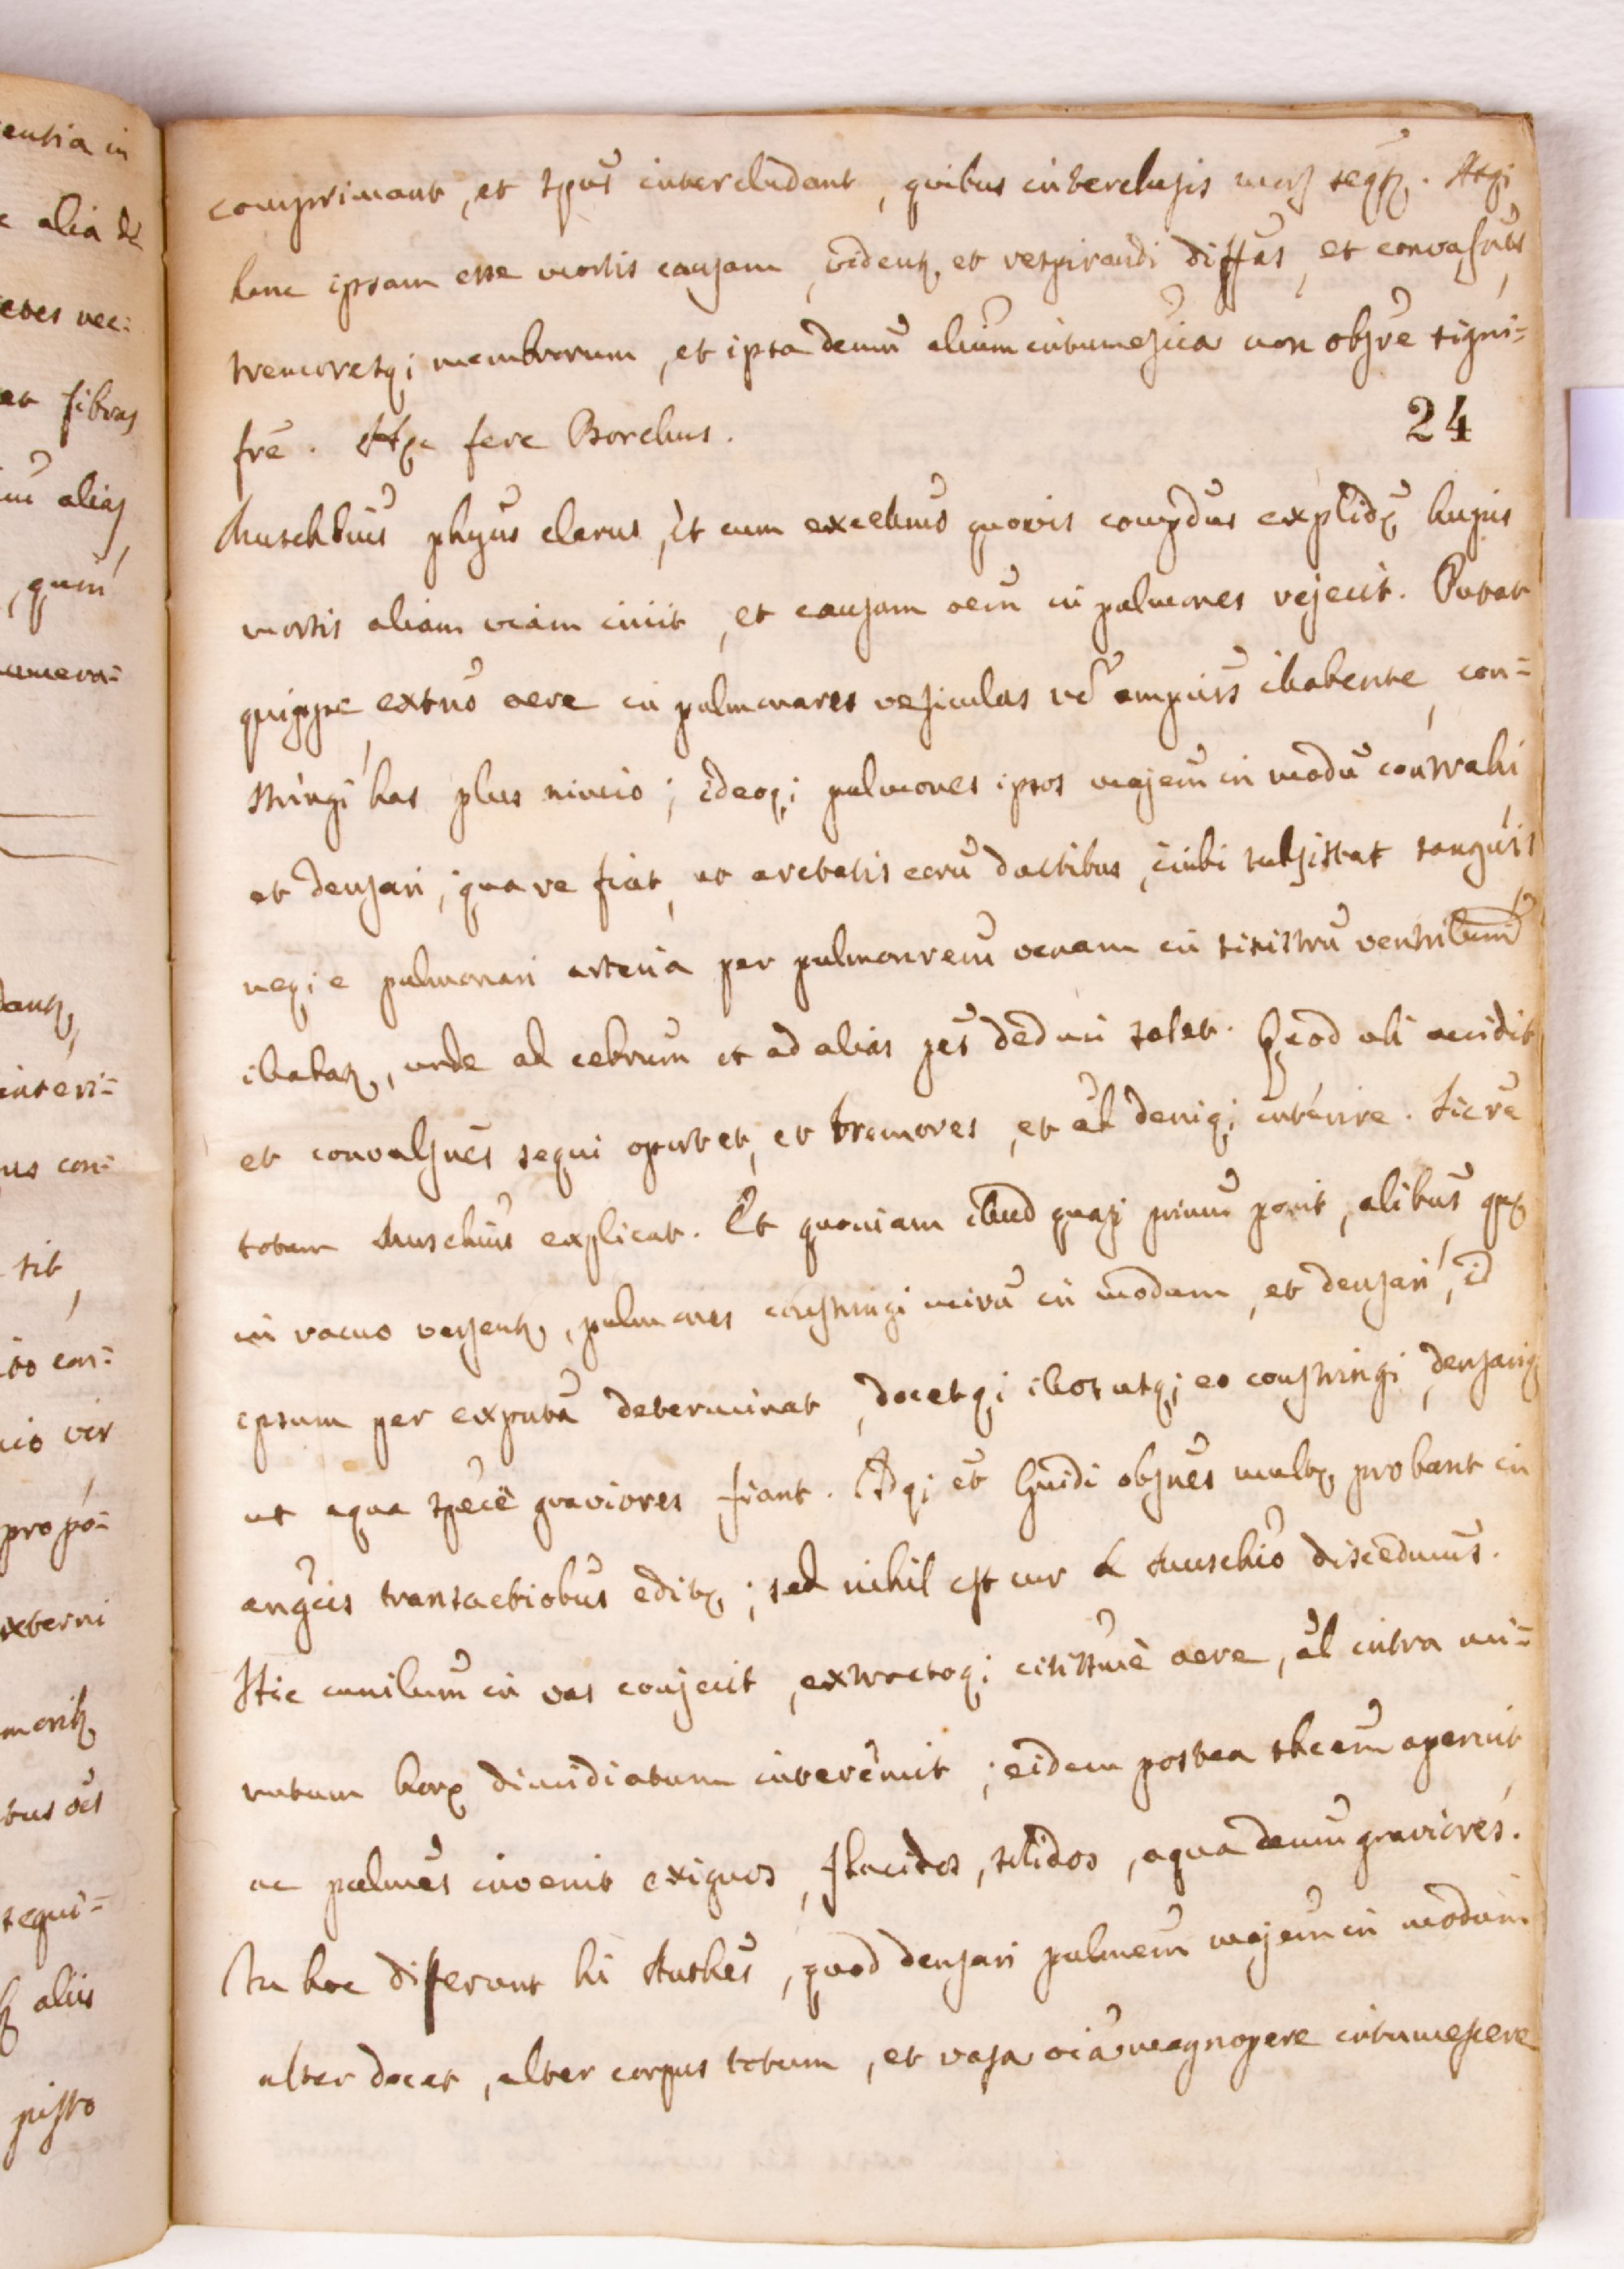 comprimant, et spūs intercludant, quibus interclusis mors seqr. Atqi
hanc ipsam esse mortis causam, vident, et respirandi difftas, et convulsnes,
tremoresqi membrorum, et ipsa demū aliūm intumesnia non obsre signi=
fre. Hæc fere Borellius.
24
Muschbius phyus clarus, ut cum
mortis aliam viam iniit, et causam oem in pulmones rejecit. Putat
quippe, extno aere in pulmonares vesiculas vel ampliūs illabente, con=
stringi has plus nimio; ideoqi pulmones ipsos majem in modū contrahi,
et densari; quare fiat, ut arctatis eorū ductibus, inibi subsistat sanguis,
neqi e pulmonari arteria per pulmonrem venam in sinistrū ventrilum
illabat, unde ad cebrum et ad alias pes deduci solet. Quod ubi accidit
et convulsnes sequi oportet, et tremores, et al deniqi interire. Sic re
totam Muschius explicat. Et quoniam illud quasi primū ponit, alibus, quæ
in vacuo versent, pulmones constringi mirū in modum, et densari, id
ipsum per exputa determinat, docetqi illos usqi eo constringi, densariqi
ut aqua specie graviores fiant. Idqi et Guidi obsnes multæ probant in
angcis transactiobus editæ; sed nihil est cur a Muschio discedmus.
Hic cunilum in vas conjecit, extractoqi citissme aere, al intra mi=
nutum horæ dimidiatum interemit; eidem postea thcem aperuit,
ac pulmes invenit exiguos, flacidos, solidos, aqua demū graviores.
In hoc diferunt hi Authes, quod densari pulmem majem in modum
alter docet, alter corpus totum, et vasa oia magnopere intumescere